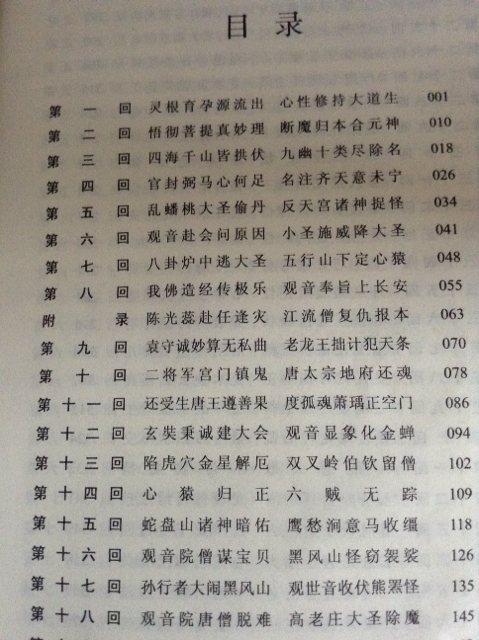 目录
第一回 灵根育孕源流出 心性修持大道生 001
第二回 悟彻菩提真妙理 断魔归本合元神 010
第三回 四海千山皆拱伏 九幽十类尽除名 018
第四回 官封弼马心何足 名注齐天意未宁 026
第五回 乱蟠桃大圣偷丹 反天宫诸神捉怪 034
第六回 观音赴会问原因 小圣施威降大圣 041
第七回 八卦炉中逃大圣 五行山下定心猿 048
第八回 我佛造经传极乐 观音奉旨上长安 055
附录 陈光蕊赴任逢灾 江流僧复仇报本 063
第九回 袁守诚妙算无私曲 老龙王拙计犯天条 070
第十回 二将军宫门镇鬼 唐太宗地府还魂 078
第十一回 还受生唐王遵善果 度孤魂萧瑀正空门 086
第十二回 玄奘秉诚建大会 观音显象化金蝉 094
第十三回 陷虎穴金星解厄 双叉岭伯钦留僧 102
第十四回 心猿归正 六贼无踪 109
第十五回 蛇盘山诸神暗佑 鹰愁涧意马收缰 118
第十六回 观音院僧谋宝贝 黑风山怪窃袈裟 126
第十七回 孙行者大闹黑风山 观世音收伏熊罴怪 135
第十八回 观音院唐僧脱难 高老庄大圣除魔 145